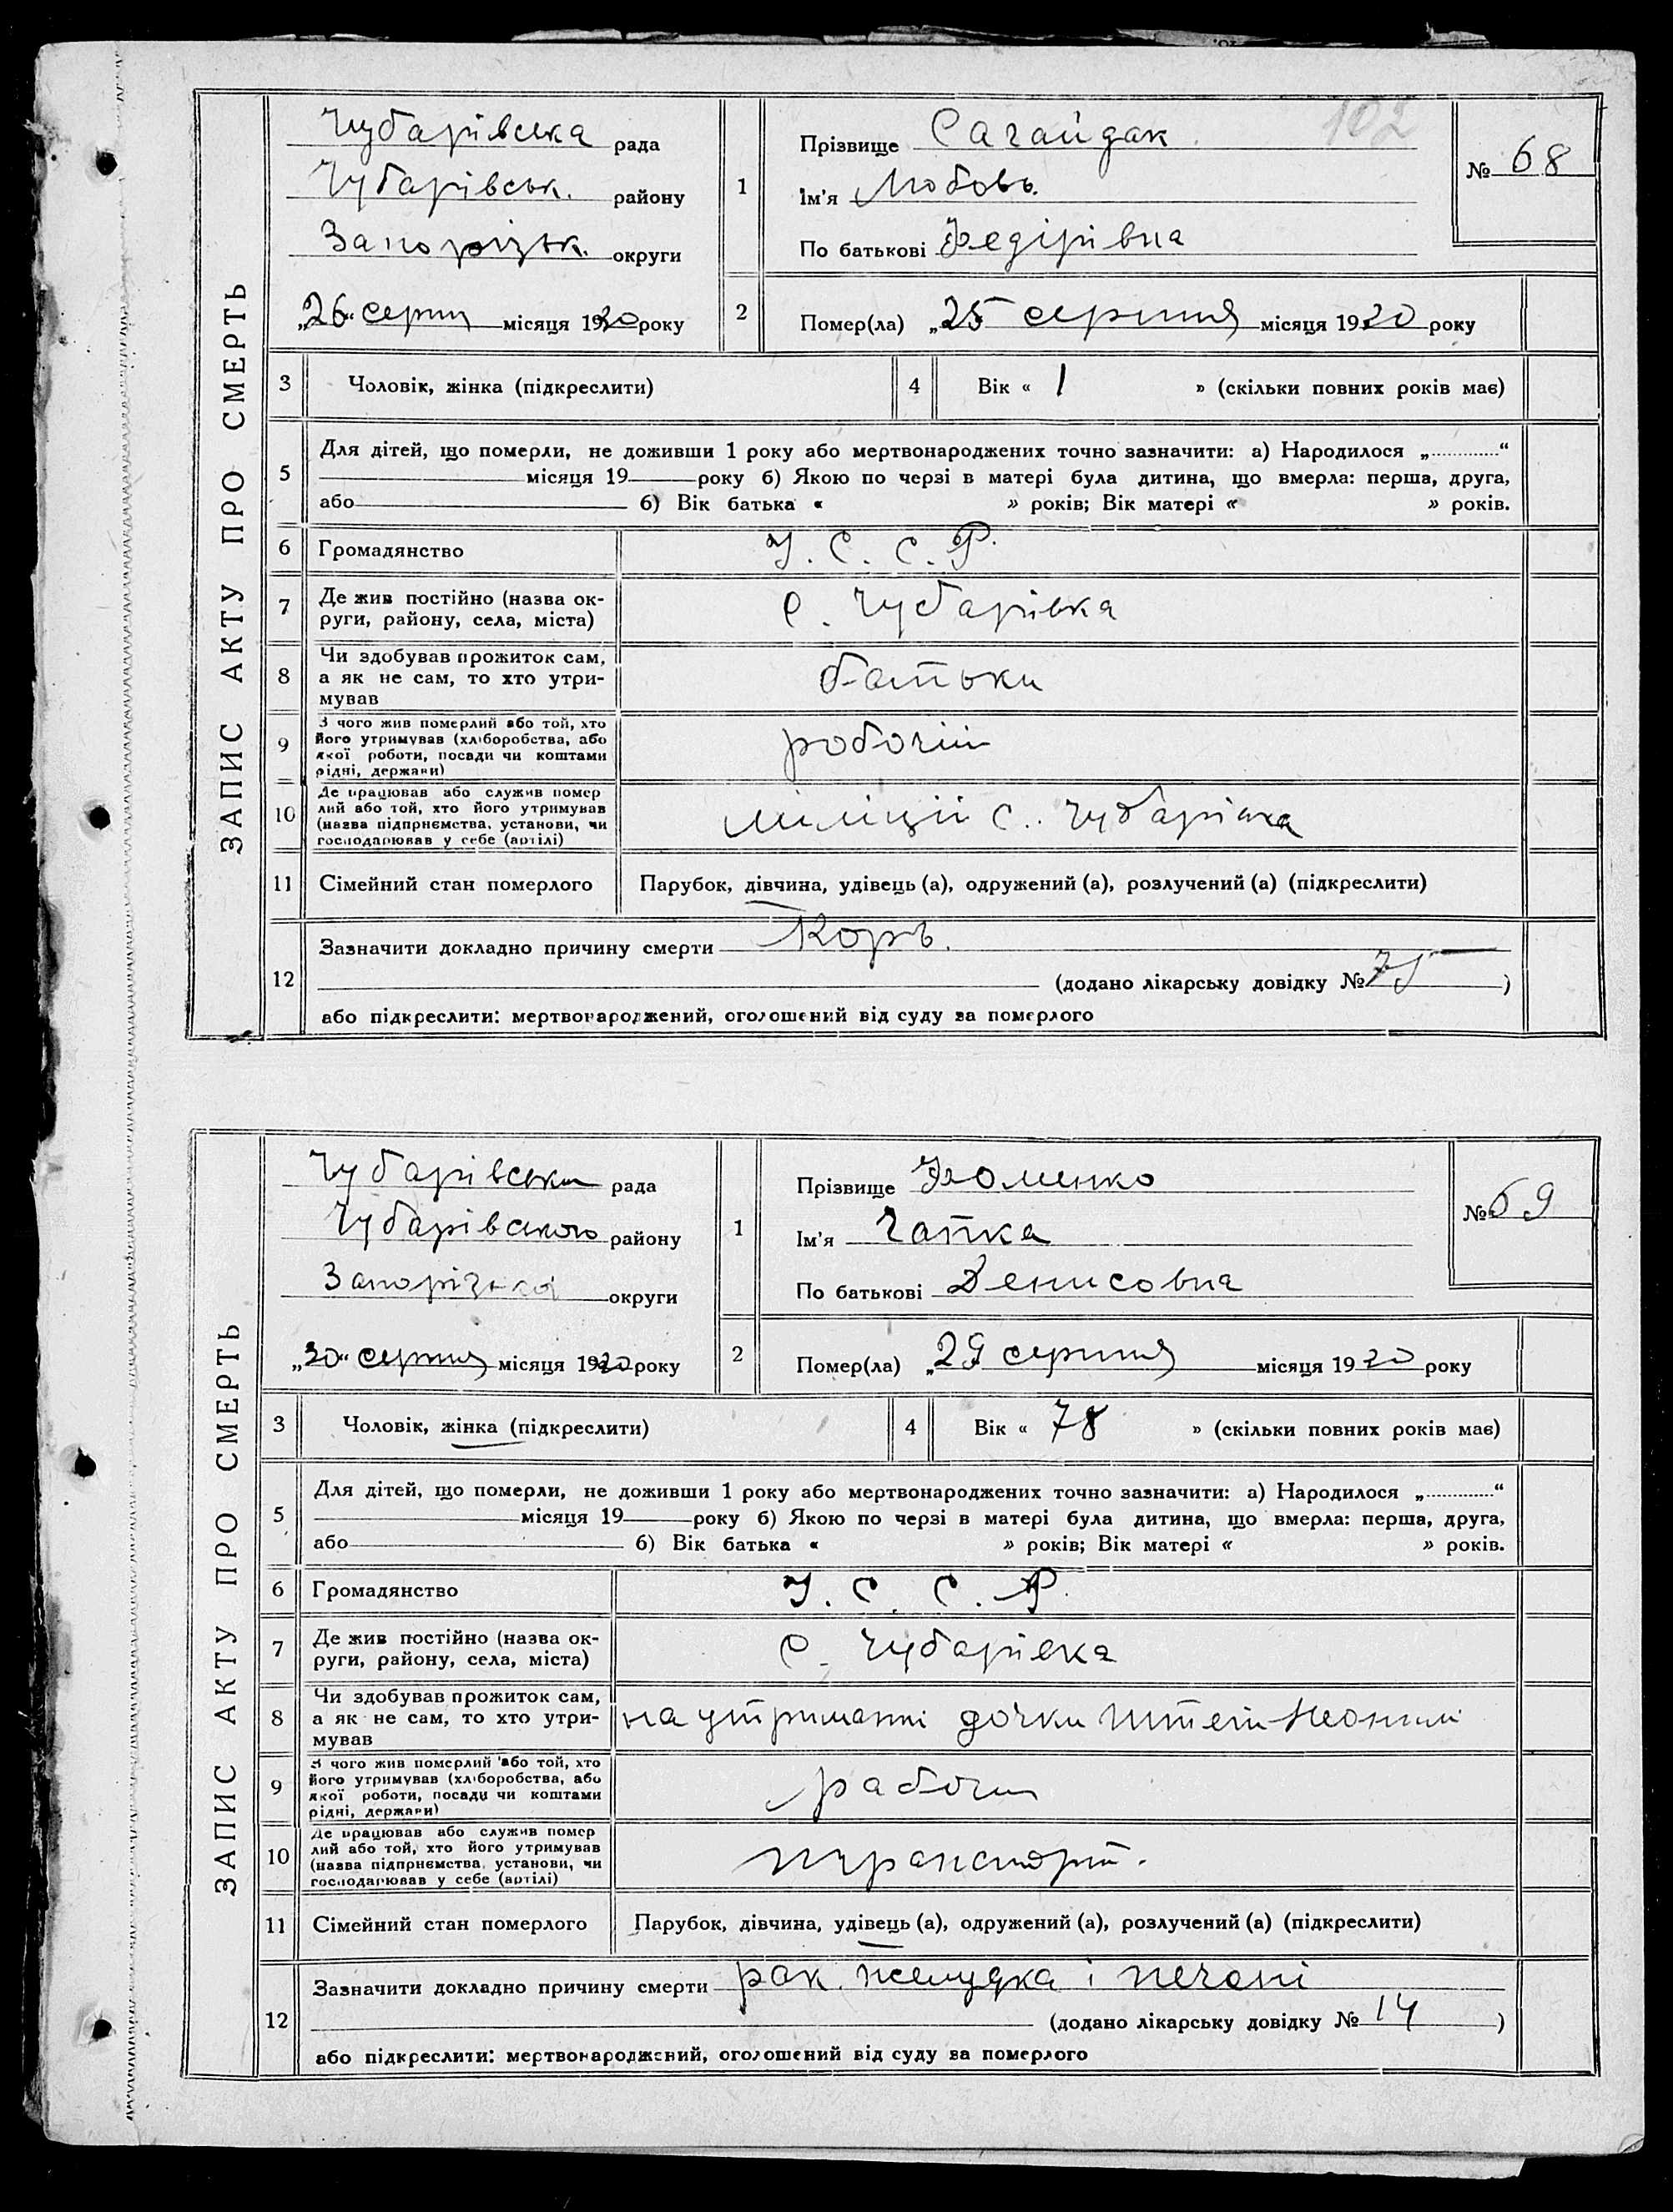 ЗАПИС АКТУ ПРО СМЕРТЬ
102
Чубарівська рада
Чубарівськ. району
Запорізьк. округи
„26“ серпн місяця 1920 року
1
Прізвище Сагайдак
Ім'я Любовь
По батькові Федірівна
№ 68
2
Помер(ла) „25 серпня місяця 1920 року
3 Чоловік, жінка (підкреслити)
4 Вік « 1 » (скільки повних років має)
5 Для дітей, що померли, не доживши 1 року або мертвонароджених точно зазначити: а) Народилося „............“
місяця 19 року б) Якою по черзі в матері була дитина, що вмерла: перша, друга,
або б) Вік батька « » років; Вік матері « » років.
6 Громадянство У. С. С. Р.
7 Де жив постійно (назва ок-
руги, району, села, міста) с. Чубарівка
8 Чи здобував прожиток сам,
а як не сам, то хто утри-
мував батьки
9 З чого жив померлий або той, хто
його утримував (хліборобства, або
якої роботи, посади чи коштами
рідні, держави) робочій
10 Де працював або служив помер
лий або той, хто його утримував
(назва підприємства, установи, чи
господарював у себе (артілі) міліціі с. Чубарівка
11 Сімейний стан померлого Парубок, дівчина, удівець (а), одружений (а), розлучений (а) (підкреслити)
12 Зазначити докладно причину смерти Корь.
(додано лікарську довідку № 75 )
або підкреслити: мертвонароджений, оголошений від суду за померлого
ЗАПИС АКТУ ПРО СМЕРТЬ
Чубарівська рада
Чубарівського району
Запорізької округи
„30“ серпня місяця 1920 року
1
Прізвище Фоменко
Ім'я
По батькові Денисовна
№ 69
2
Помер(ла) „29 серпня місяця 1920 року
3 Чоловік, жінка (підкреслити)
4 Вік « 78 » (скільки повних років має)
5 Для дітей, що померли, не доживши 1 року або мертвонароджених точно зазначити: а) Народилося „............“
місяця 19 року б) Якою по черзі в матері була дитина, що вмерла: перша, друга,
або б) Вік батька « » років; Вік матері « » років.
6 Громадянство У. С. С. Р.
7 Де жив постійно (назва ок-
руги, району, села, міста) с. Чубарівка
8 Чи здобував прожиток сам,
а як не сам, то хто утри-
мував на утриманні дочки
9 З чого жив померлий або той, хто
його утримував (хліборобства, або
якої роботи, посади чи коштами
рідні, держави) рабочи
10 Де працював або служив помер
лий або той, хто його утримував
(назва підприємства, установи, чи
господарював у себе (артілі) транспорт.
11 Сімейний стан померлого Парубок, дівчина, удівець (а), одружений (а), розлучений (а) (підкреслити)
12 Зазначити докладно причину смерти рак желудка і печені
(додано лікарську довідку № 14 )
або підкреслити: мертвонароджений, оголошений від суду за померлого